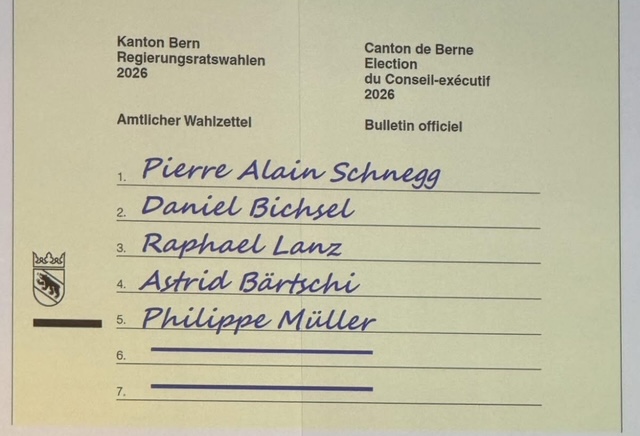 Kanton Bern
Regierungsratswahlen
2026
Amtlicher Wahlzettel
Canton de Berne
Election
du Conseil-exécutif
2026
Bulletin officiel
1. Pierre Alain Schnegg
2. Daniel Bichsel
3. Raphael Lanz
4. Astrid Bärtschi
5. Philippe Müller
6.
7.